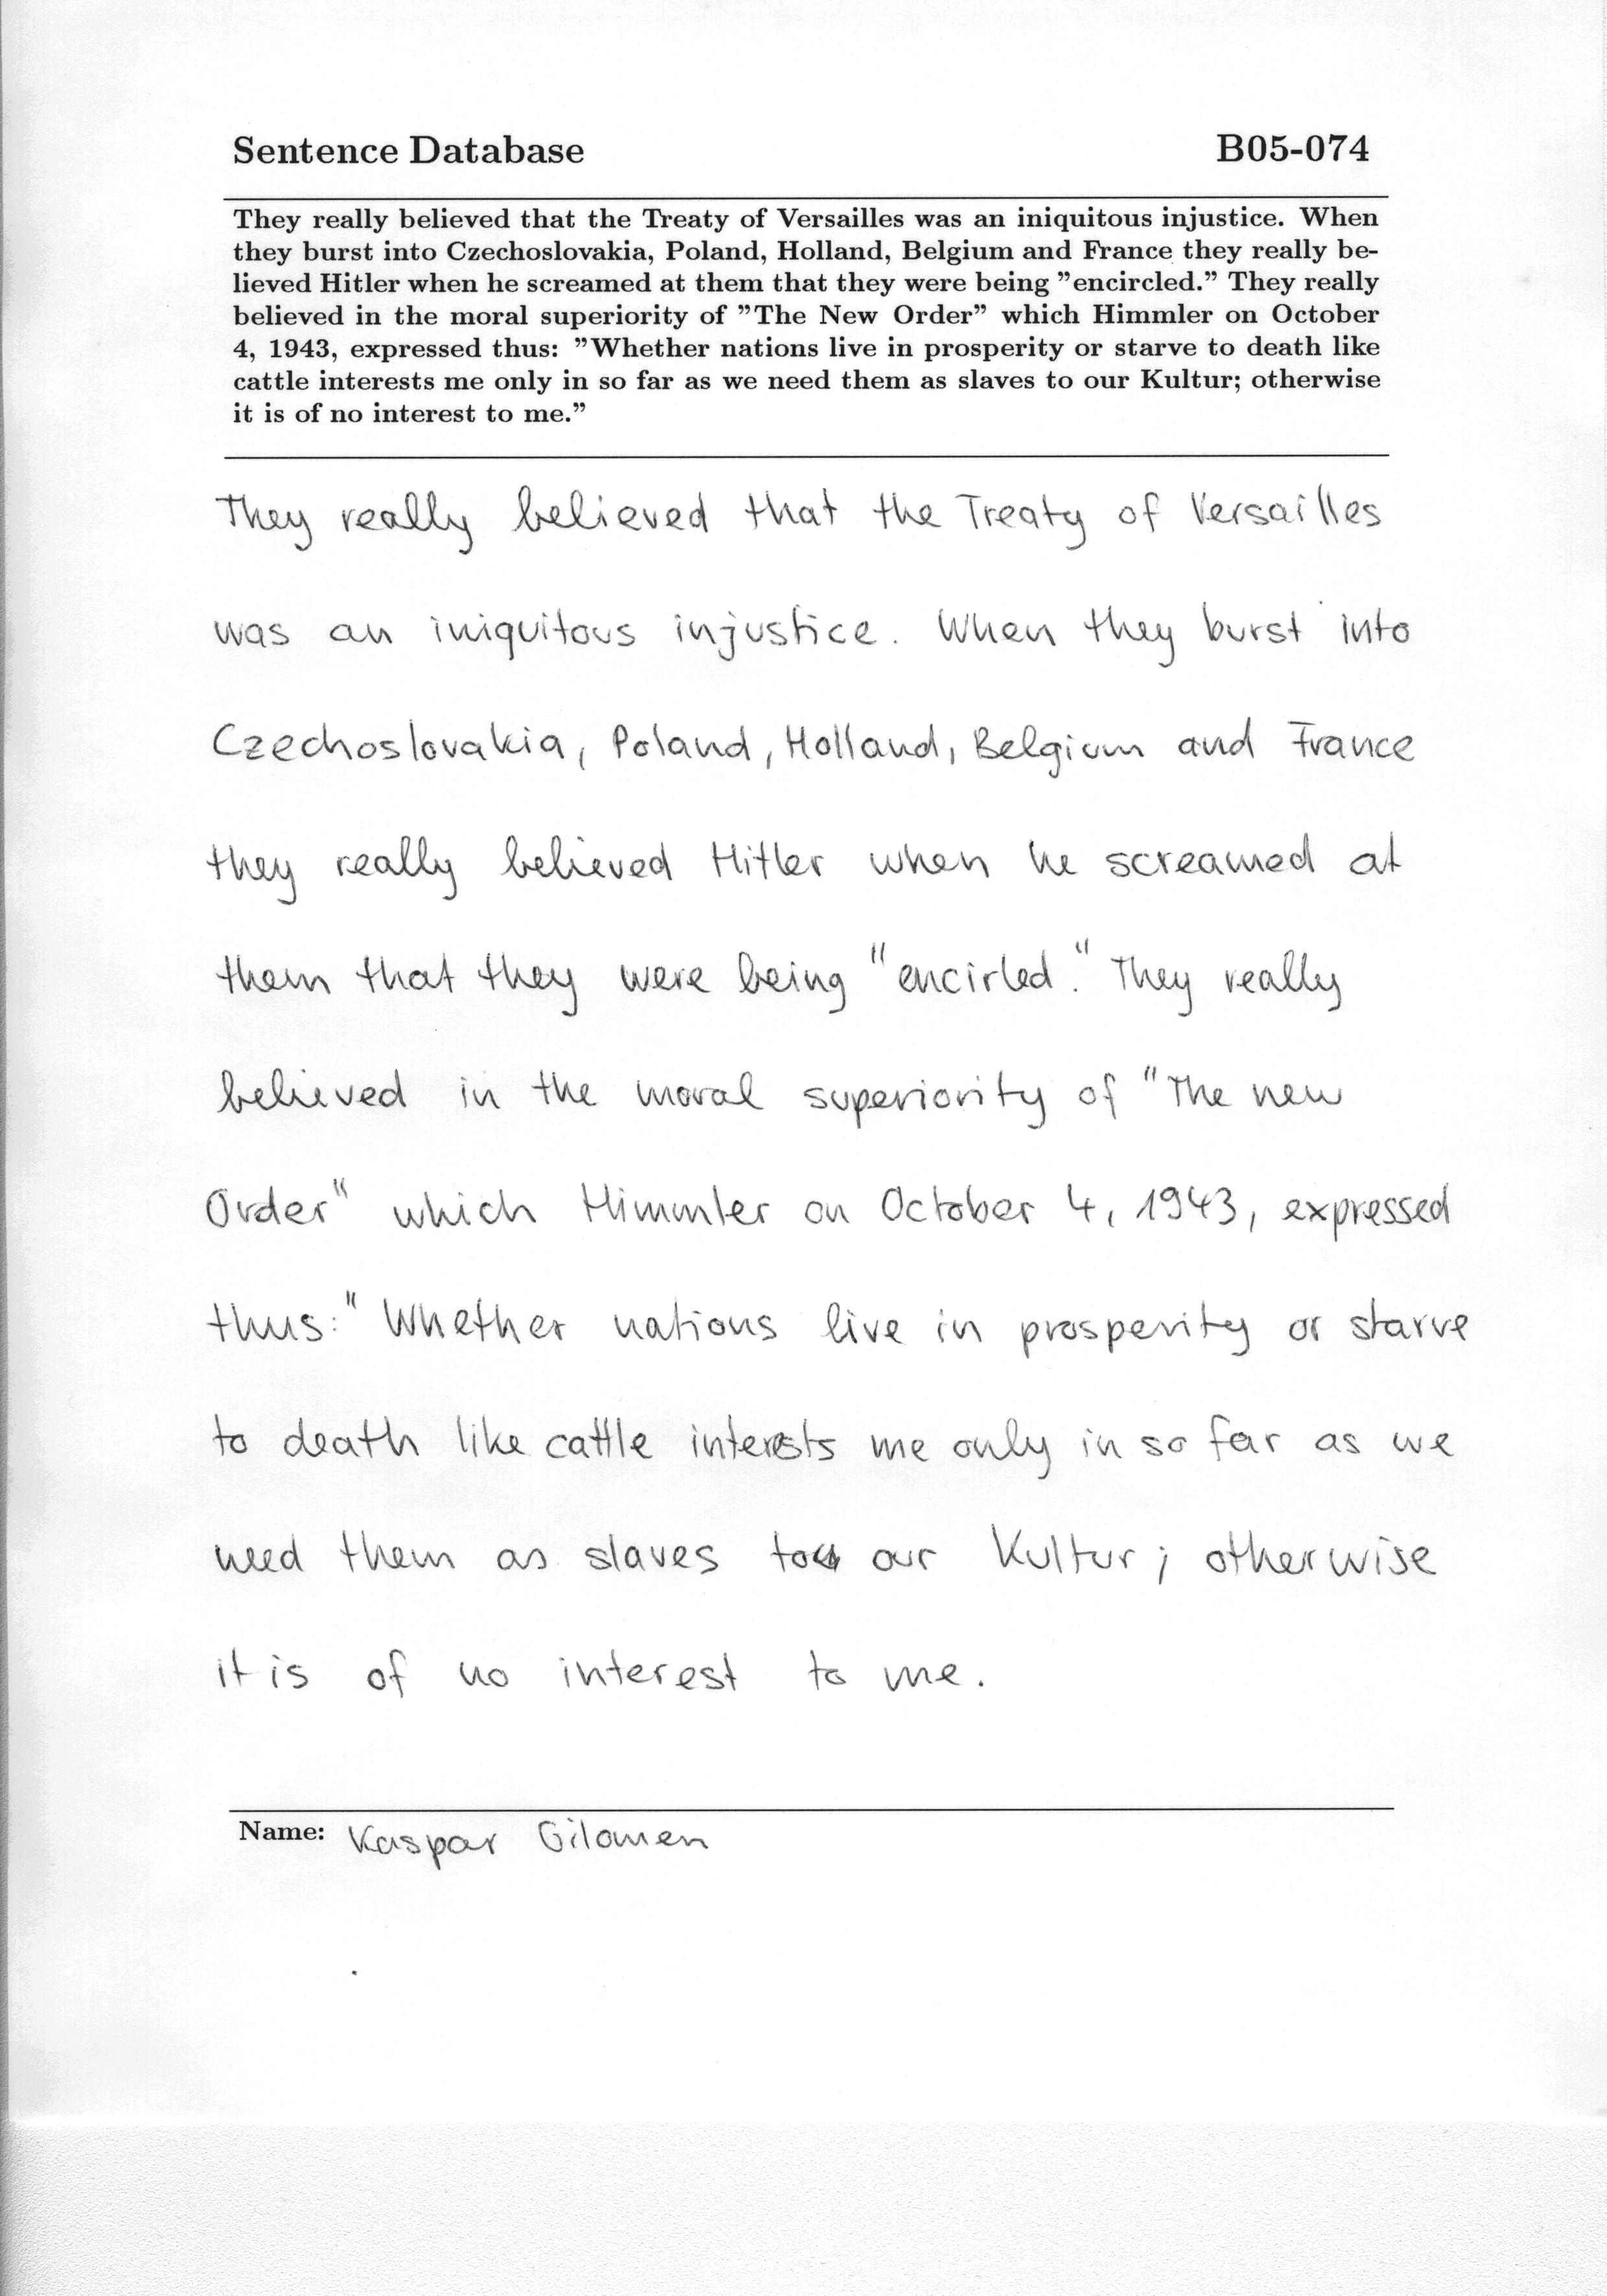 Sentence Database B05-074
They really believed that the Treaty of Versailles was an iniquitous injustice. When
they burst into Czechoslovakia, Poland, Holland, Belgium and France they really be-
lieved Hitler when he screamed at them that they were being ”encircled.” They really
believed in the moral superiority of ”The New Order” which Himmler on October
4, 1943, expressed thus: ”Whether nations live in prosperity or starve to death like
cattle interests me only in so far as we need them as slaves to our Kultur; otherwise
it is of no interest to me.”
They really believed that the Treaty of Versailles
was an iniquitous injustice. When they burst into
Czechoslovakia, Poland, Holland, Belgium and France
they really believed Hitler when he screamed at
them that they were being "encirled." They really
believed in the moral superiority of "The new
Order" which Himmler on October 4, 1943, expressed
thus: "Whether nations live in prosperity or starve
to death like cattle interests me only in so far as we
need them as slaves to our Kultur; otherwise
it is of no interest to me.
Name: Kaspar Gilomen